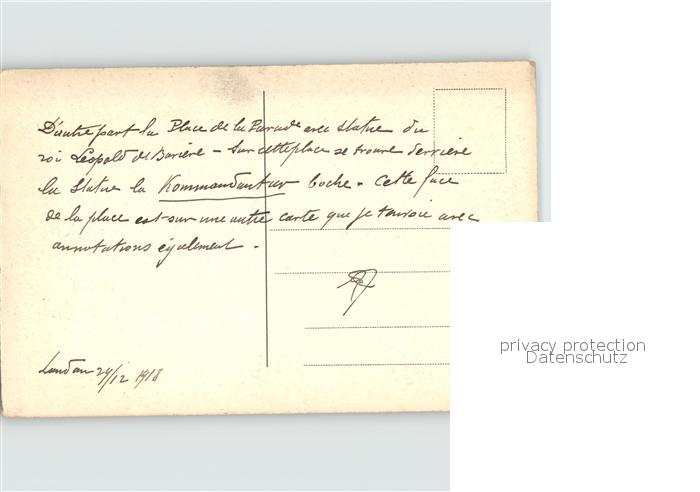 D'autre part la Place de la Parade avec statue du
roi Léopold de Bavière – Sur cette place se trouve derrière
la statue la Kommandantur boche. Cette face
de la place est sur une autre carte que je t'envoie avec
annotations également.
Landau 29/12 1918
privacy protection
Datenschutz